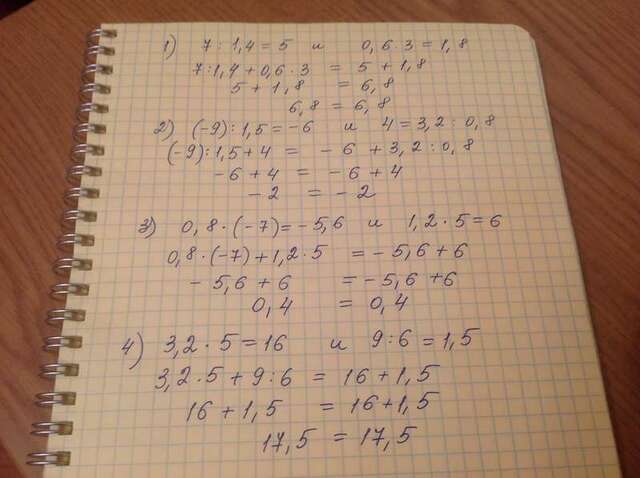 1) 7 : 1,4 = 5 и 0,6 · 3 = 1,8
7 : 1,4 + 0,6 · 3 = 5 + 1,8
5 + 1,8 = 6,8
6,8 = 6,8
2) (-9) : 1,5 = -6 и 4 = 3,2 : 0,8
(-9) : 1,5 + 4 = -6 + 3,2 : 0,8
-6 + 4 = -6 + 4
-2 = -2
3) 0,8 · (-7) = -5,6 и 1,2 · 5 = 6
0,8 · (-7) + 1,2 · 5 = -5,6 + 6
-5,6 + 6 = -5,6 + 6
0,4 = 0,4
4) 3,2 · 5 = 16 и 9 : 6 = 1,5
3,2 · 5 + 9 : 6 = 16 + 1,5
16 + 1,5 = 16 + 1,5
17,5 = 17,5